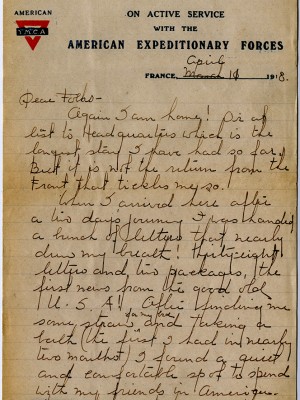 AMERICAN
Y.M.C.A.
ON ACTIVE SERVICE
WITH THE
AMERICAN EXPEDITIONARY FORCES
April
FRANCE, March 10 1918.
Dear Folks-
Again I am home! Six of
last to Headquarters which is the
longest stay I have had so far.
But it is not the return from the
Front that tickles me so.
When I arrived here after
a two days journey I was handed
a bunch of letters that nearly
drew my breath! Thirty eight
letters and two packages, the
first news from the good old
U. S. A! After finding me
some straw, for my bed, and taking a
bath (the first I had in nearly
two months) I found a quiet
and comfortable spot to spend
with my friends in America.